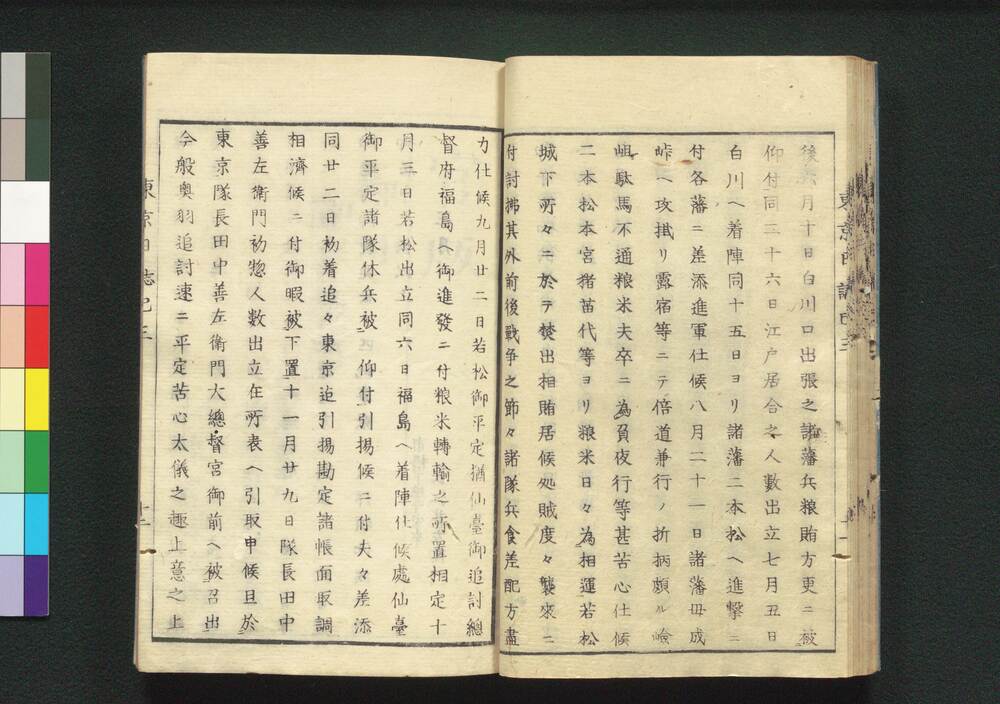 後六月十日白川口出張之諸藩兵粮賄方更ニ被
仰付同二十六日江戸居合之人數出立七月五日
白川ヘ着陣同十五日ヨリ諸藩二本松ヘ進撃ニ
付各藩ニ差添進軍仕候八月二十一日諸藩毋成
峠ヘ攻掛リ露宿等ニテ倍道兼行ノ折柄頗ル嶮
岨駄馬不通粮米夫卒ニ為負夜行等甚苦心仕候
二本松本宮猪苗代等ヨリ粮米日々為相運若松
城下所々ニ於テ焚出相賄居候処賊度々襲來ニ
付討拂其外前後戰争之節々諸隊兵食差配方盡
力仕候九月廿二日若松御平定猶仙臺御追討總
督府福島ヘ御進發ニ付粮米轉輸之所置相定十
月三日若松出立同六日福島ヘ着陣仕候處仙臺
御平定諸隊休兵被 仰付引揚候ニ付夫々差添
同廿二日初着追々東京迄引揚勘定諸帳面取調
相濟候ニ付御暇被下置十一月廿九日隊長田中
善左衛門初惣人數出立在所表ヘ引取申候且於
東京隊長田中善左衛門大總督宮御前ヘ被召出
今般奥羽追討速ニ平定苦心太儀之趣上意之上
東京日誌巳三